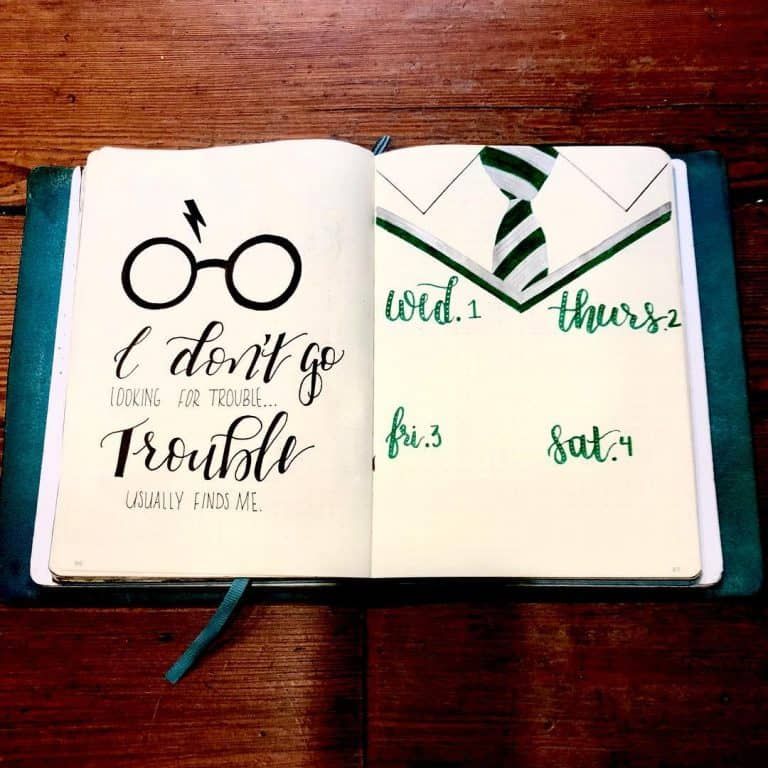 I don't go
LOOKING FOR TROUBLE...
Trouble
USUALLY FINDS ME.
wed. 1
thurs. 2
fri. 3
sat. 4